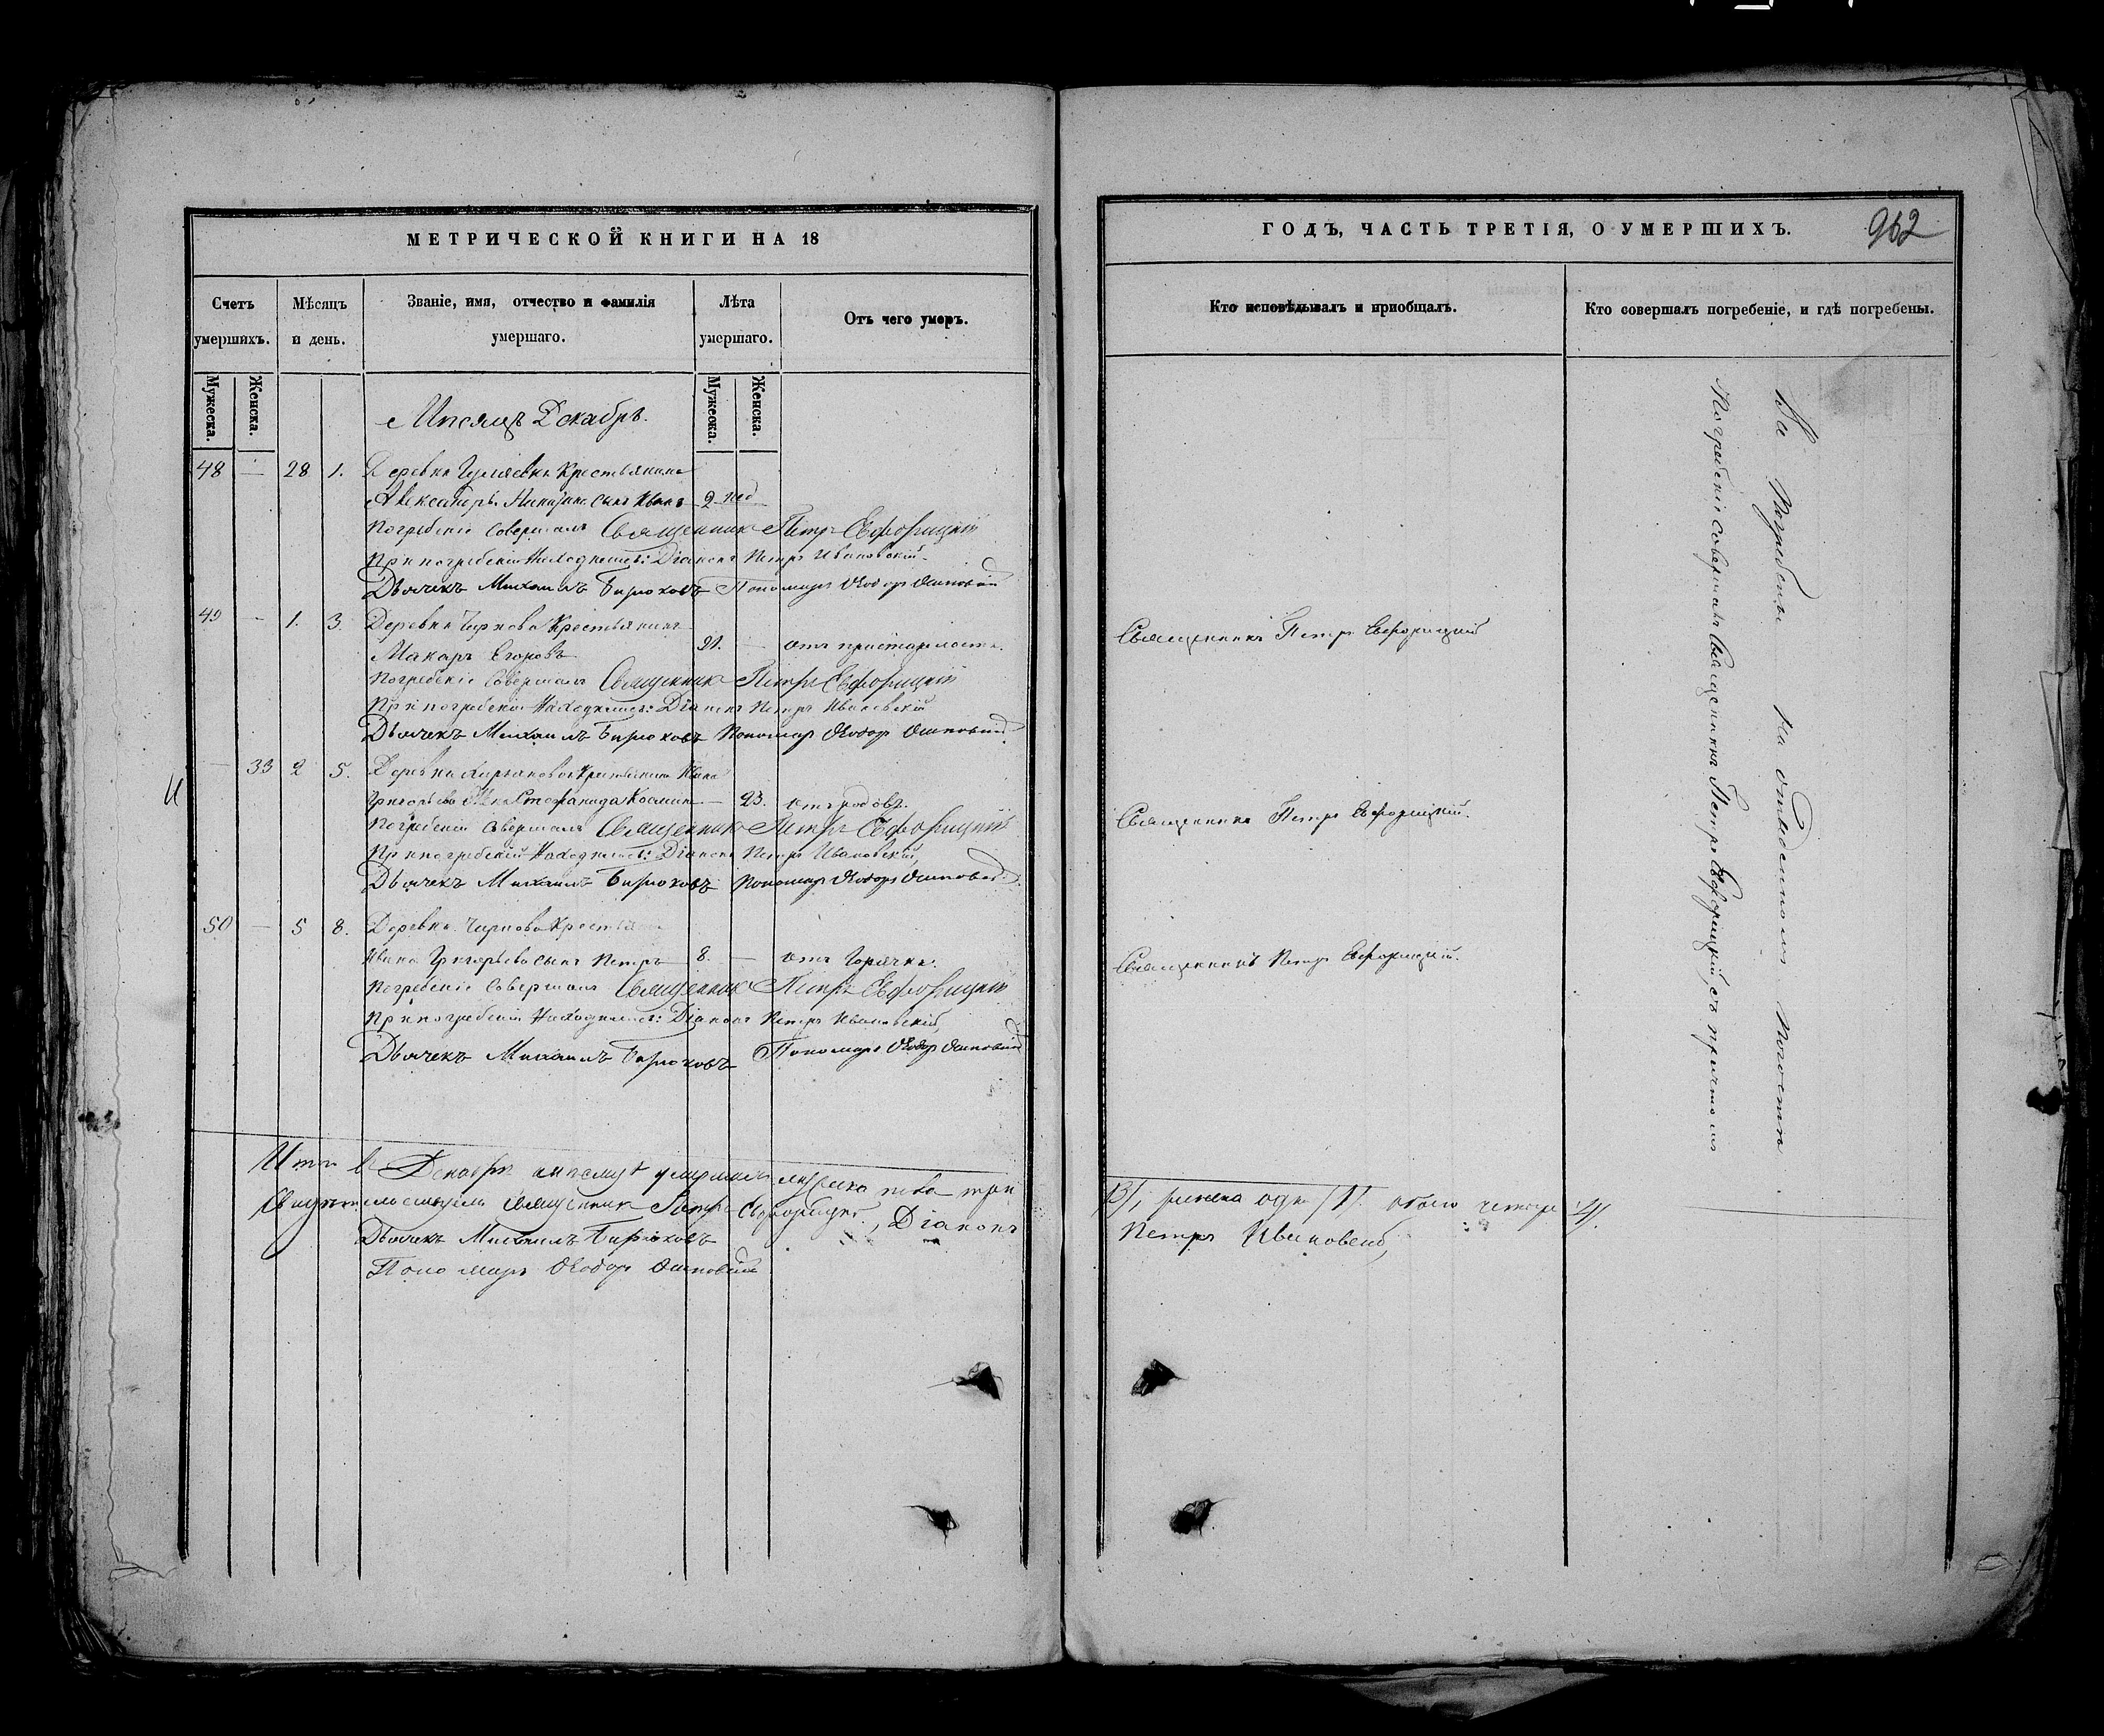 МЕТРИЧЕСКОЙ КНИГИ НА 18
Счетъ умершихъ.
Мѣсяцъ и день.
Званіе, имя, отчество и фамилія умершаго.
Лѣта умершаго.
Отъ чего умеръ.
Мужеска.
Женска.
Мужеска.
Женска.
Мѣсяцъ Декабрь.
48 — 28 1. Деревни Крестьянина
Александръ сынъ Иванъ 2 нед
Погребеніе Совершалъ Священникъ Петръ
При погребеніи Находились: Діаконъ Петръ Ивановскій
Дьячекъ Михаилъ Бирюковъ Пономарь Ѳедоръ
49 — 1. 3. Деревни Чиркова Крестьянинъ
Макаръ Егоровъ — отъ престарлости.
Погребеніе Совершалъ Священникъ Петръ
При погребеніи Находились: Діаконъ Петръ Ивановскій
Дьячекъ Михаилъ Бирюковъ Пономарь Ѳедоръ
— 33 2 5. Деревни Крестьянина Ивана
Григорьева Жена Стефанида Космина — 23. отъ родовъ.
Погребеніе Совершалъ Священникъ Петръ
При погребеніи Находились: Діаконъ Петръ Ивановскій,
Дьячекъ Михаилъ Бирюковъ Пономарь Ѳедоръ
50 — 5 8. Деревни Чиркова Крестьян
Ивана Григорьева сынъ Петръ 8. — отъ Горячки.
Погребеніе Совершалъ Священникъ Петръ
При погребеніи Находились: Діаконъ Петръ Ивановскій,
Дьячекъ Михаилъ Бирюковъ Пономарь Ѳедоръ
Итого въ Декабрѣ мѣсяцѣ умершихъ мужеска пола три
Священникъ Петръ, Діаконъ
Дьячекъ Михаилъ Бирюковъ
Пономарь Ѳедоръ
ГОДЪ, ЧАСТЬ ТРЕТІЯ, О УМЕРШИХЪ.
962
Кто исповѣдывалъ и пріобщалъ.
Кто совершалъ погребеніе, и гдѣ погребены.
Священникъ Петръ
Священникъ Петръ
Священникъ Петръ
Погребеніе совершалъ Священникъ Петръ съ причтомъ
Погребены на отведенномъ погостѣ
/3/, женска одна /1/. обоего четыре /4/.
Петръ Ивановскій,